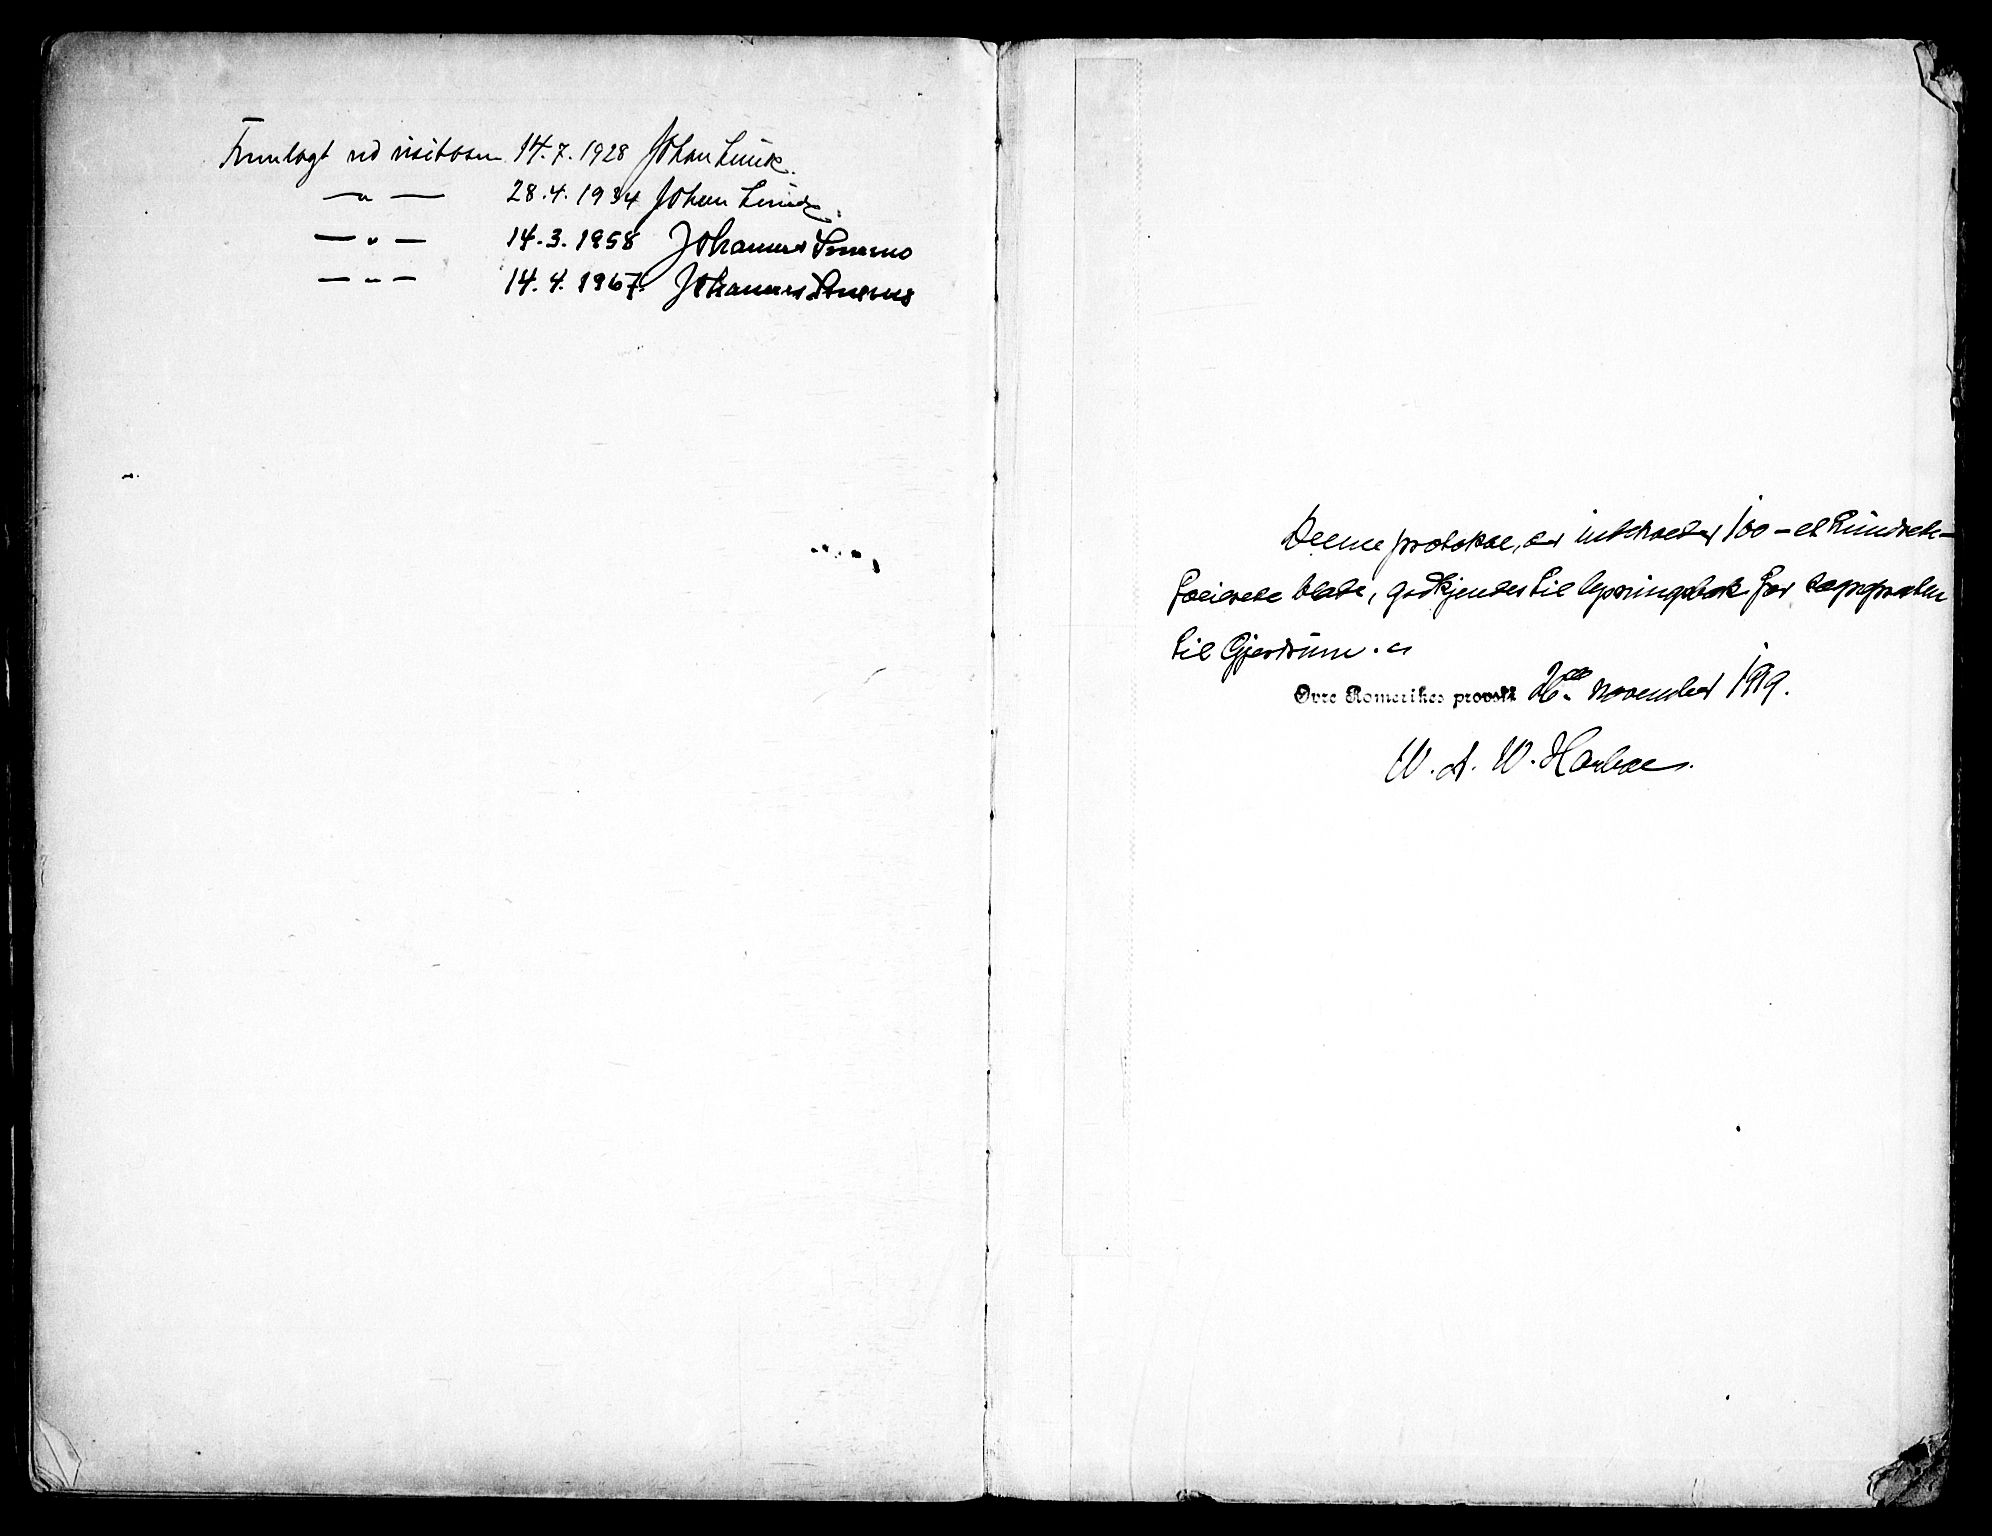 Fremlagt ved visitasen 14.7.1928 Johan Lunde.
— " — 28.4.1934 Johan Lunde.
— " — 14.3.1958 Johannes Smemo
— " — 14.4.1967. Johannes Smemo
Denne protokol, der indeholder 100 – et hundrede –
folierede blade, godkjendes til lysningsbok for sognepresten
til Gjerdrum.
Øvre Romerikes prosti 26de november 1919.
W. A. W. Harboe.